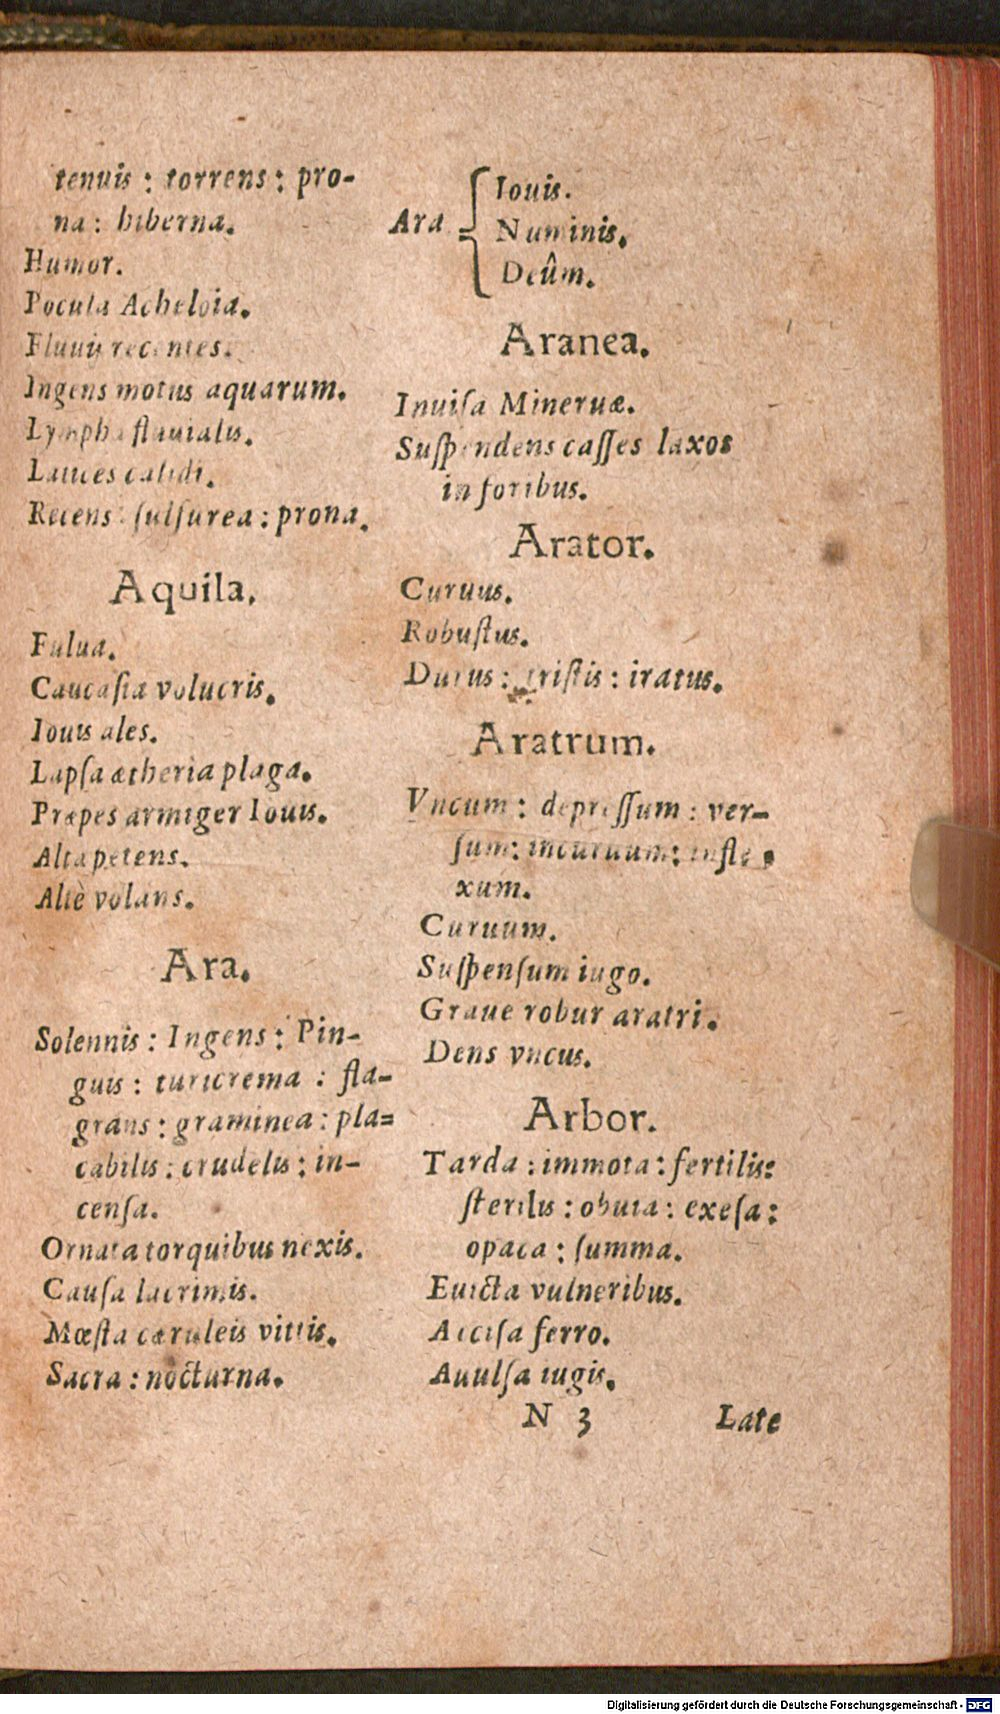 tenuis : torrens : pro-
na : hiberna.
Humor.
Pocula Acheloia.
Fluuij recentes.
Ingens motus aquarum.
Lympha fluuialis.
Latices calidi.
Recens : sulfurea : prona.
Aquila.
Fulua.
Caucasia volucris.
Iouis ales.
Lapsa ætheria plaga.
Præpes armiger Iouis.
Alta petens.
Altè volans.
Ara.
Solennis : Ingens : Pin-
guis : turicrema : fla-
grans : graminea : pla=
cabilis : crudelis : in-
censa.
Ornata torquibus nexis.
Causa lacrimis.
Mœsta cæruleis vittis.
Sacra : nocturna.
Ara
Iouis.
Numinis.
Deûm.
Aranea.
Inuisa Mineruæ.
Suspendens casses laxos
in foribus.
Arator.
Curuus.
Robustus.
Durus : tristis : iratus.
Aratrum.
Vncum : depressum : ver-
sum : incuruum : infle-
xum.
Curuum.
Suspensum iugo.
Graue robur aratri.
Dens vncus.
Arbor.
Tarda : immota : fertilis :
sterilis : obuia : exesa :
opaca : summa.
Euicta vulneribus.
Accisa ferro.
Auulsa iugis.
N 3 Late
Digitalisierung gefördert durch die Deutsche Forschungsgemeinschaft - DFG